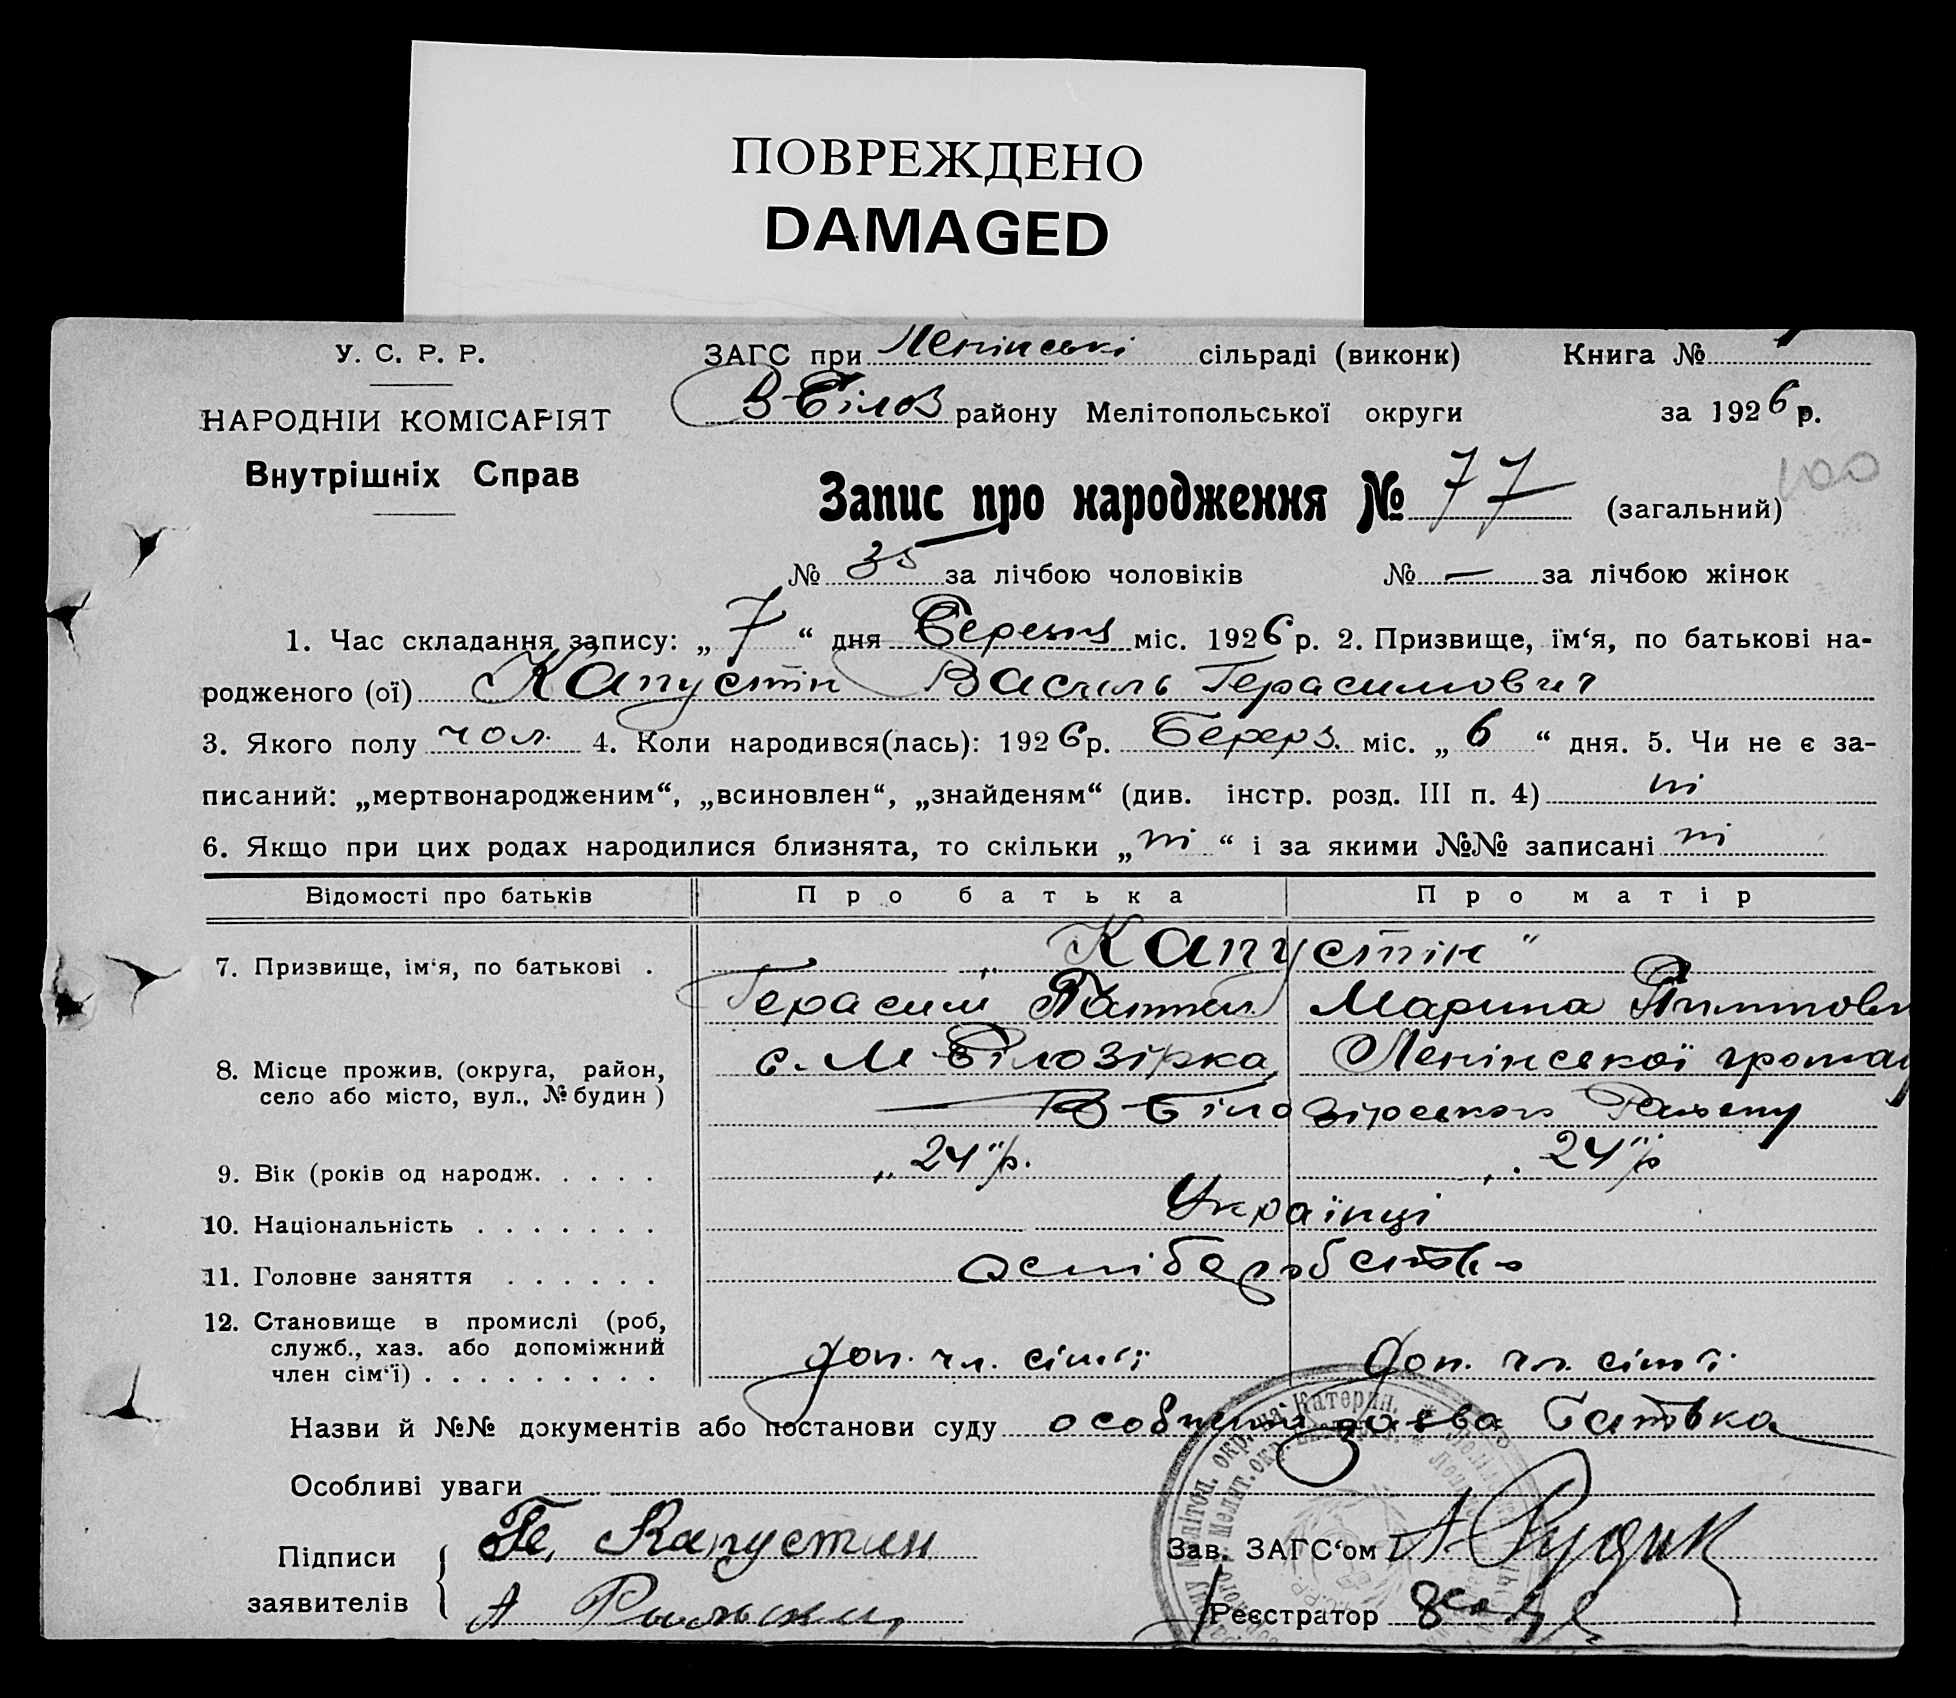 ПОВРЕЖДЕНО
DAMAGED
У. С. Р. Р.
ЗАГС при Ленінські сільраді (виконк) Книга №
НАРОДНІЙ КОМІСАРІЯТ
В-Білоз району Мелітопольської округи за 1926 р.
Внутрішніх Справ
Запис про народження № 77 (загальний)
100
№ 35 за лічбою чоловіків № — за лічбою жінок
1. Час складання запису: „ 7 “ дня Березня міс. 1926 р. 2. Призвище, їм‘я, по батькові на-
родженого (ої) Капустін Василь Герасимович
3. Якого полу чол. 4. Коли народився(лась): 1926 р. Берерз. міс. „ 6 “ дня. 5. Чи не є за-
писаний: „мертвонародженим“, „всиновлен“, „знайденям“ (див. інстр. розд. III п. 4) ні
6. Якщо при цих родах народилися близнята, то скільки „ ні “ і за якими №№ записані ні
Відомості про батьків Про батька Про матір
7. Призвище, ім‘я, по батькові . „ Капустін “
Герасим Марина
8. Місце прожив. (округа, район, с. М Білозірка Ленінської громад
село або місто, вул., № будин )
В-Білозірського Району
9. Вік (років од народж. . . . . „ 24 “ р. „ 24 “ р
10. Національність . . . . . . . Українці
11. Головне заняття . . . . . .
12. Становище в промислі (роб,
служб., хаз. або допоміжний
член сім‘ї) . . . . . . . . . доп. чл. сім‘ї доп. чл. сім‘ї
Назви й №№ документів або постанови суду особиста заява батька
Особливі уваги
Підписи Ге. Капустин Зав. ЗАГС‘ом А Рудик
заявителів А Реєстратор